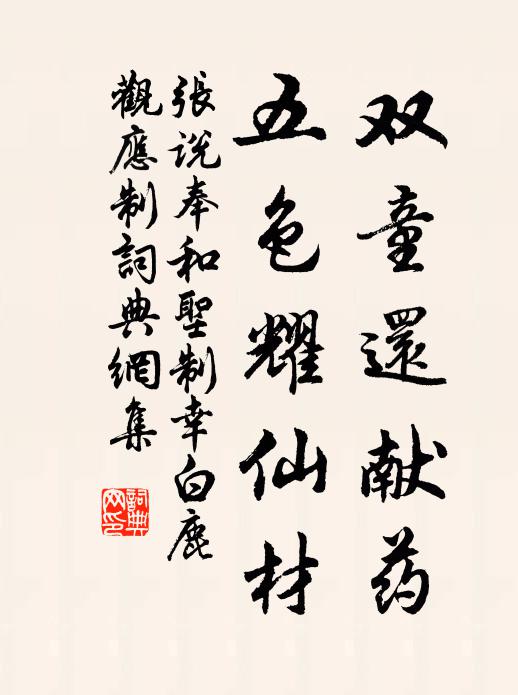 双童還献药
五色耀仙材
張説奉和聖制幸白鹿
觀應制詞典網集
詞典
网印